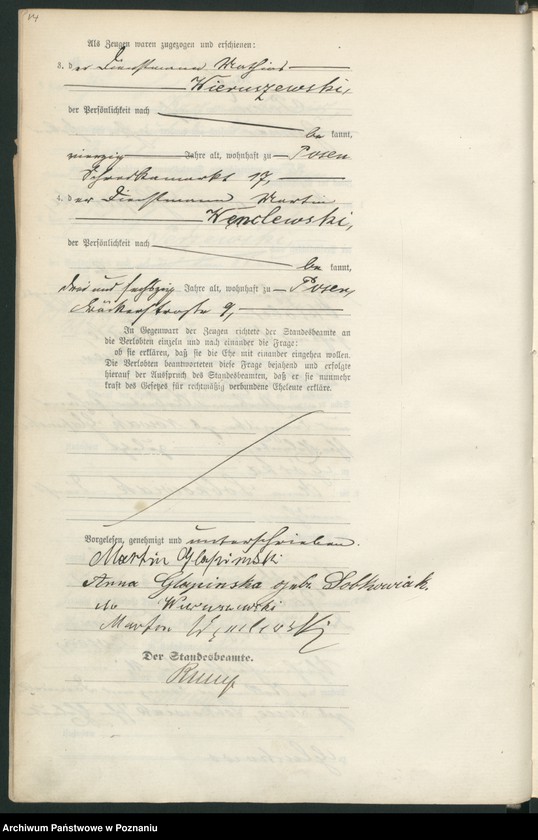 Als Zeugen waren zugezogen und erschienen:
3. der Dienstmann Mathias
Wieruszewski,
der Persönlichkeit nach
bekannt,
vierzig Jahre alt, wohnhaft zu Posen
17,
4. der Dienstmann Martin
Wendlewski,
der Persönlichkeit nach
bekannt,
drei und sechszig Jahre alt, wohnhaft zu Posen,
Bäckerstraße 9,
In Gegenwart der Zeugen richtete der Standesbeamte an
die Verlobten einzeln und nach einander die Frage:
ob sie erklären, daß sie die Ehe mit einander eingehen wollen.
Die Verlobten beantworteten diese Frage bejahend und erfolgte
hierauf der Ausspruch des Standesbeamten, daß er sie nunmehr
kraft des Gesetzes für rechtmäßig verbundene Eheleute erkläre.
Vorgelesen, genehmigt und unterschrieben.
Martin Glapinski
Anna Glapinska geb. Sobkowiak.
Wieruszewski
Martin
Der Standesbeamte.
Archiwum Państwowe w Poznaniu